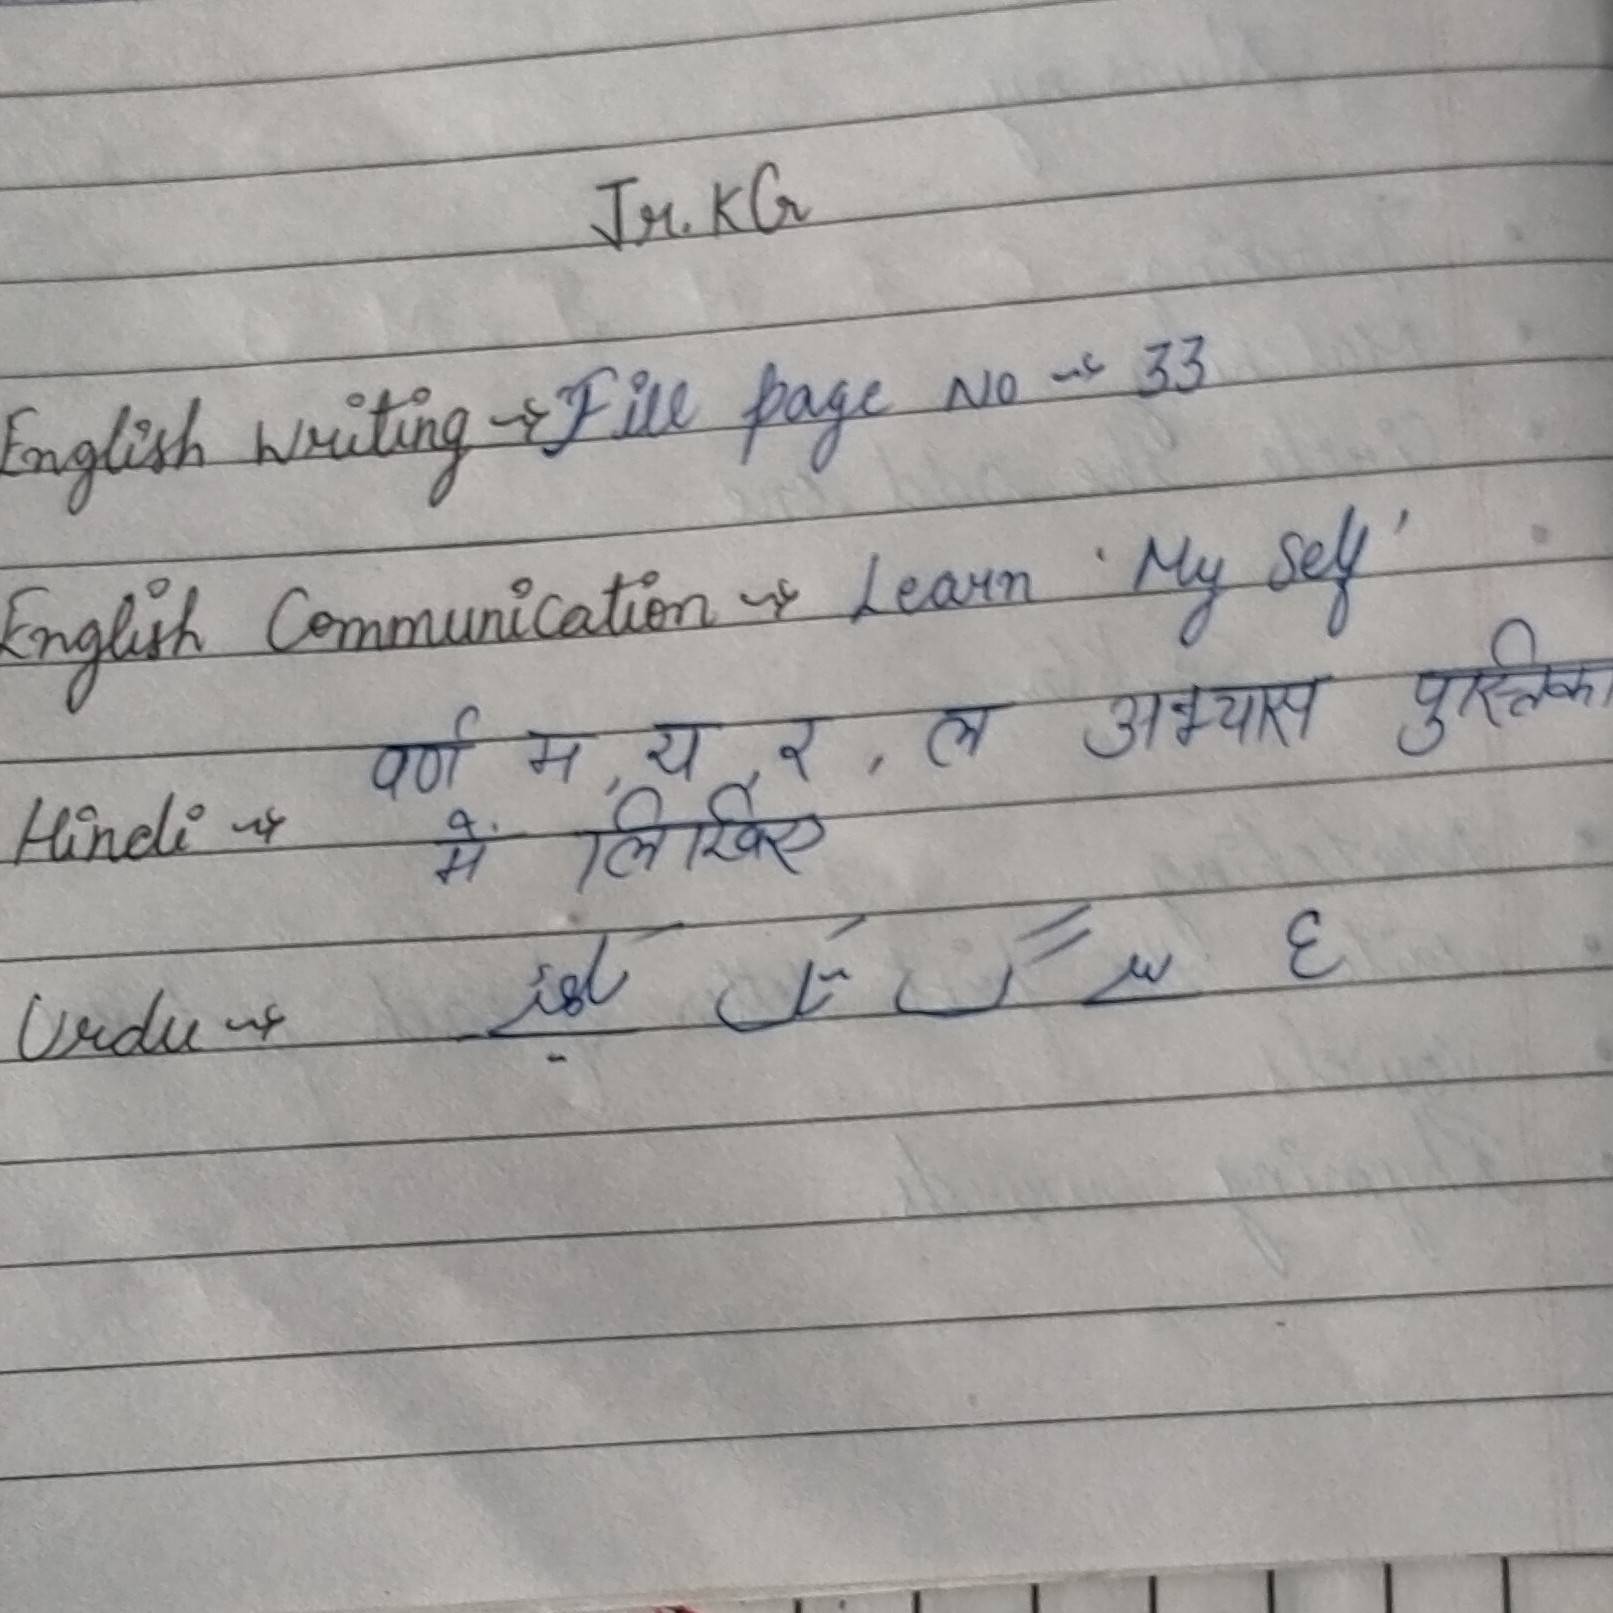 Jr. KG
English Writing → Fill page No → 33
English Communication → Learn 'My Self'
वर्ण म, य, र, ल अभ्यास पुस्तिका
Hindi → में लिखिए
Urdu →